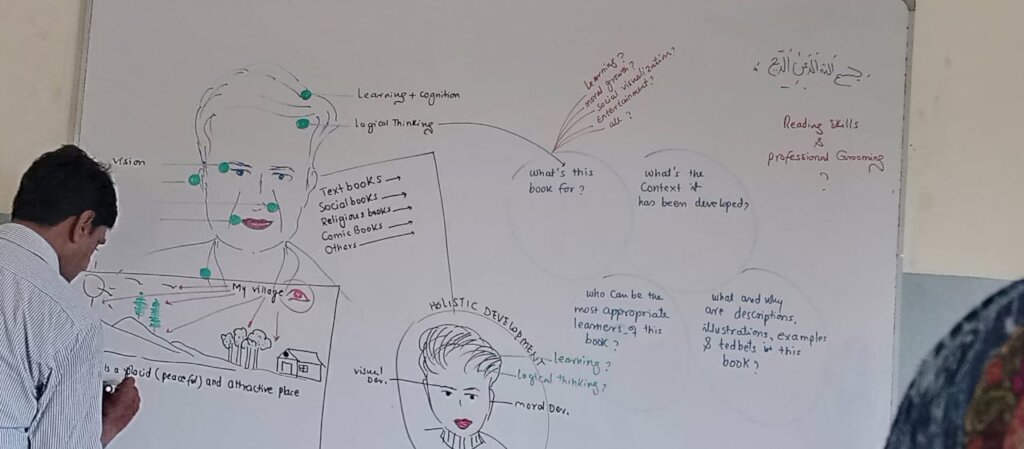 Learning + Cognition
Logical Thinking
vision
Textbooks
Social books
Religious books
Comic Books
Others
Learning?
moral growth?
social visualization?
Entertainment?
all?
what's this
book for?
what's the
Context it
has been developed?
Reading Skills
&
professional Grooming
?
My village
is a placid (peaceful) and attractive place
HOLISTIC DEVELOPMENT
visual
Dev.
learning?
logical thinking?
moral Dev.
who can be the
most appropriate
learners of this
book?
what and why
are descriptions,
illustrations, examples
& tedbets in this
book?